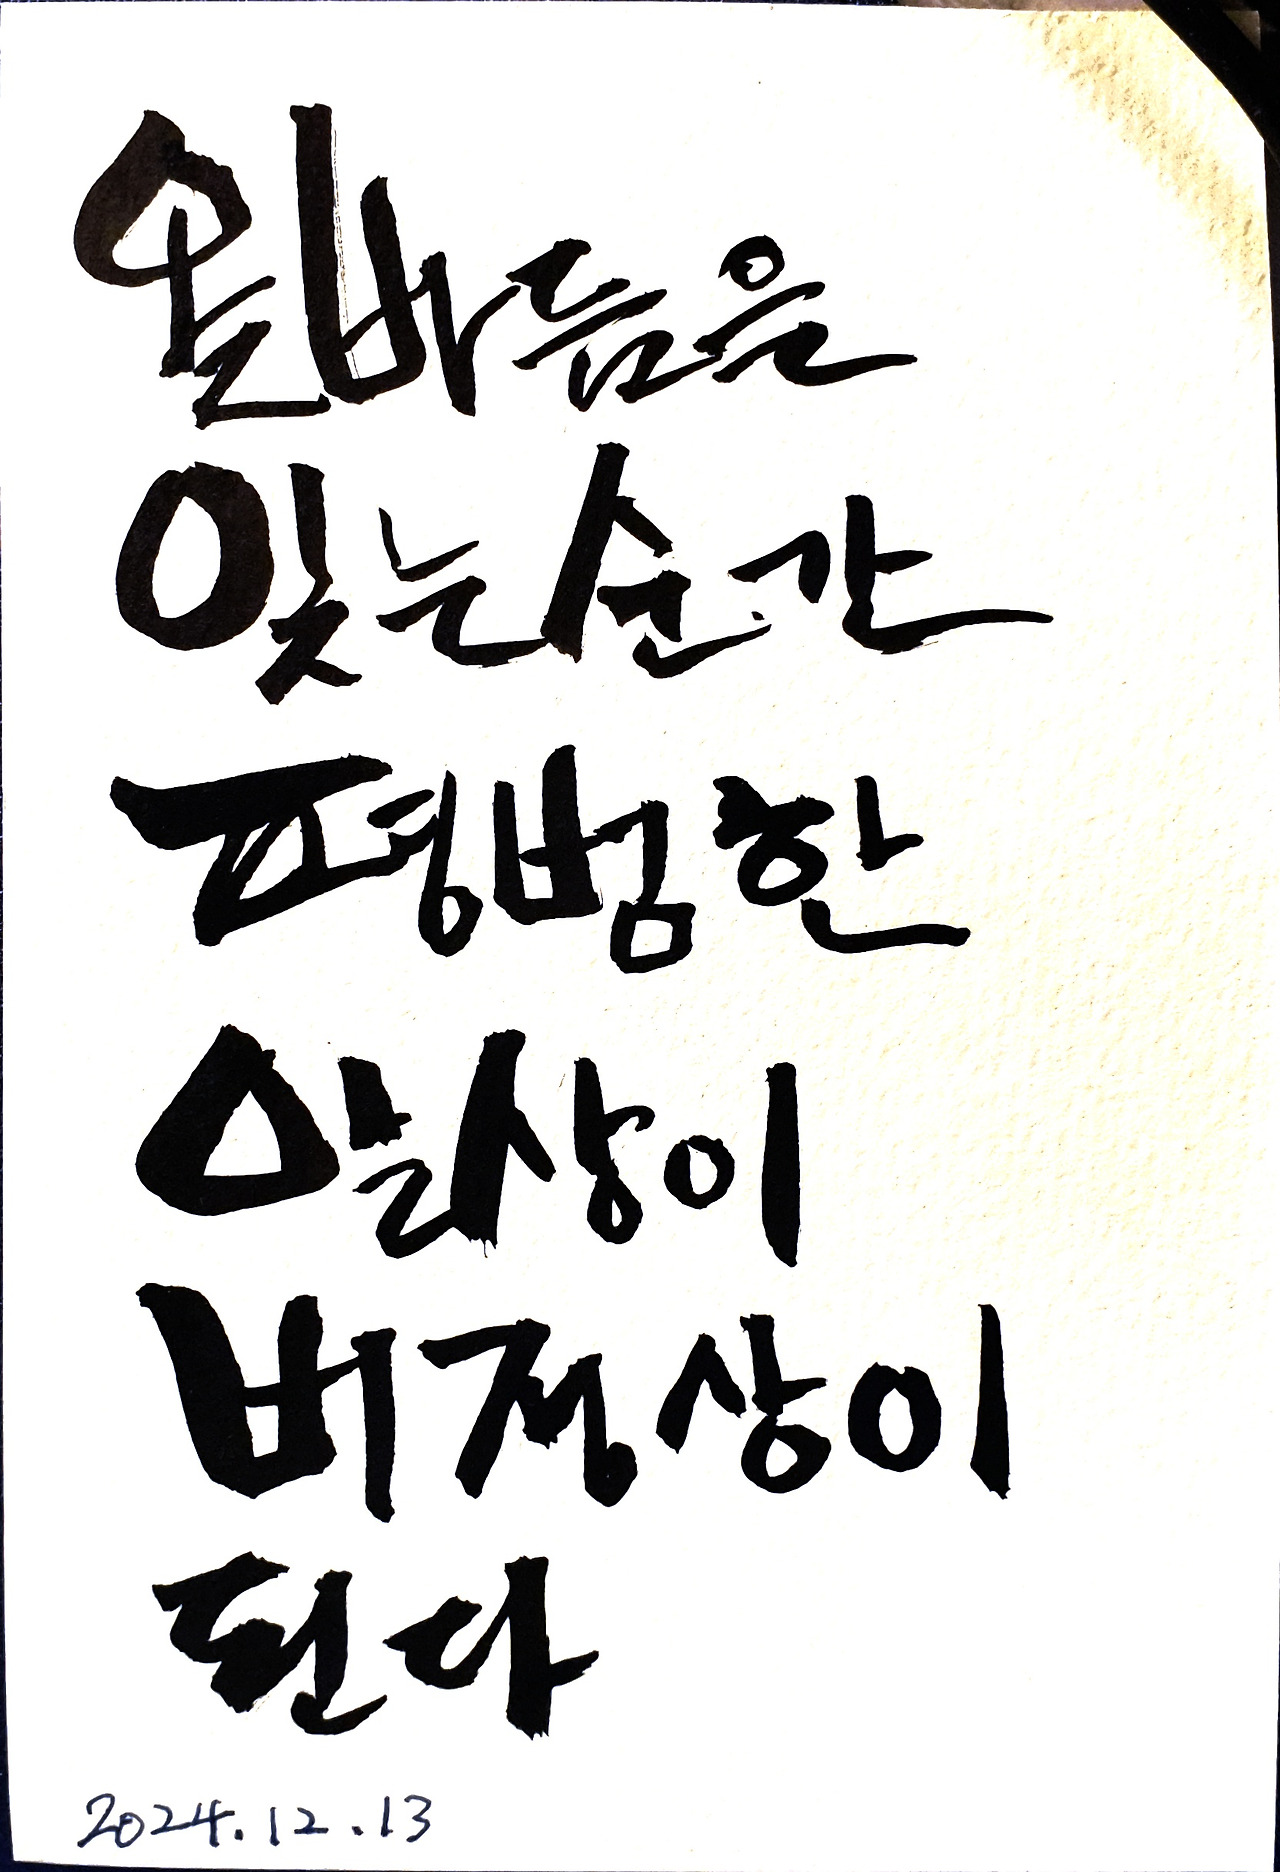 올바름을
잊는순간
평범한
일상이
비정상이
된다
2024.12.13